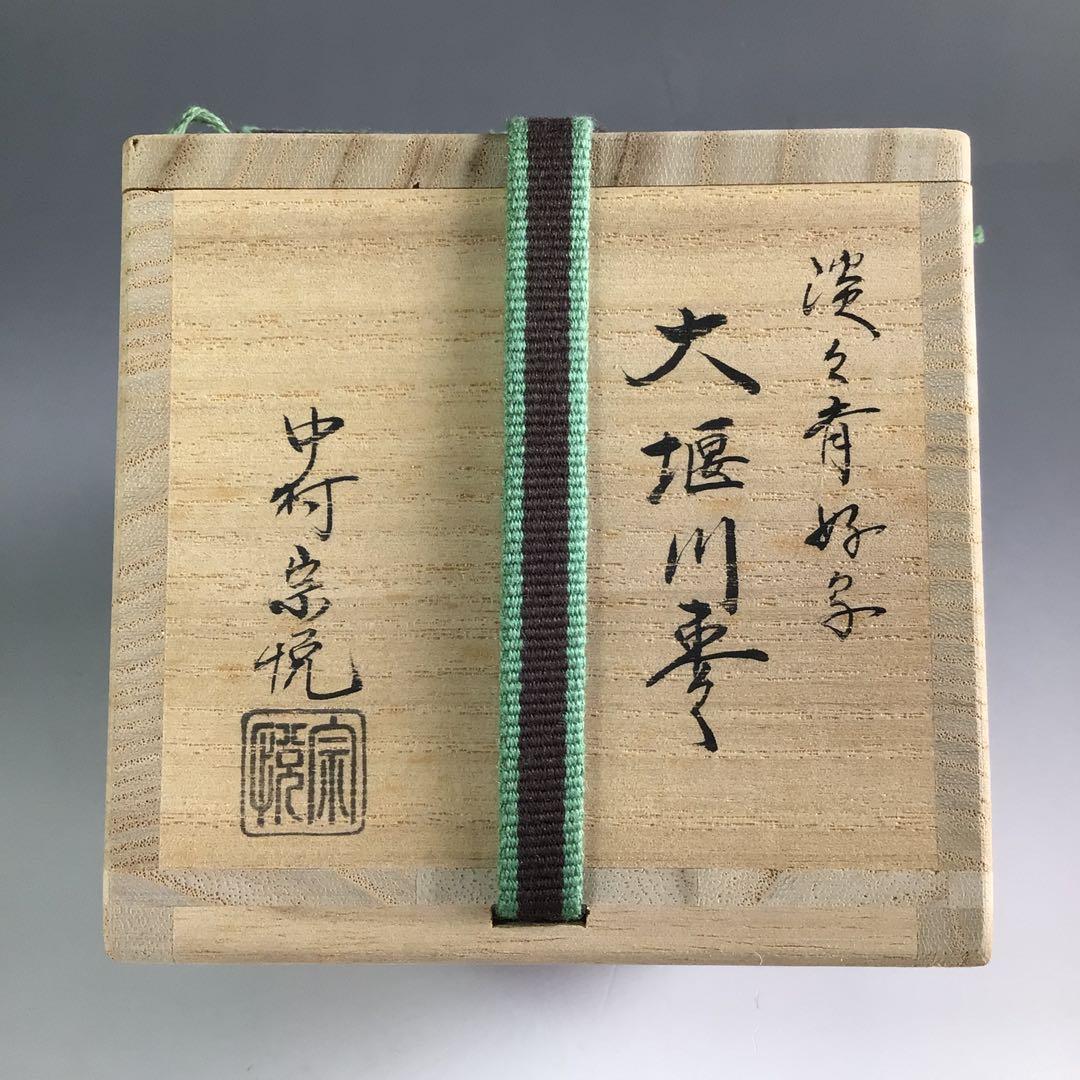 淡々斎好写
大堰川棗
中村宗悦
宗悦